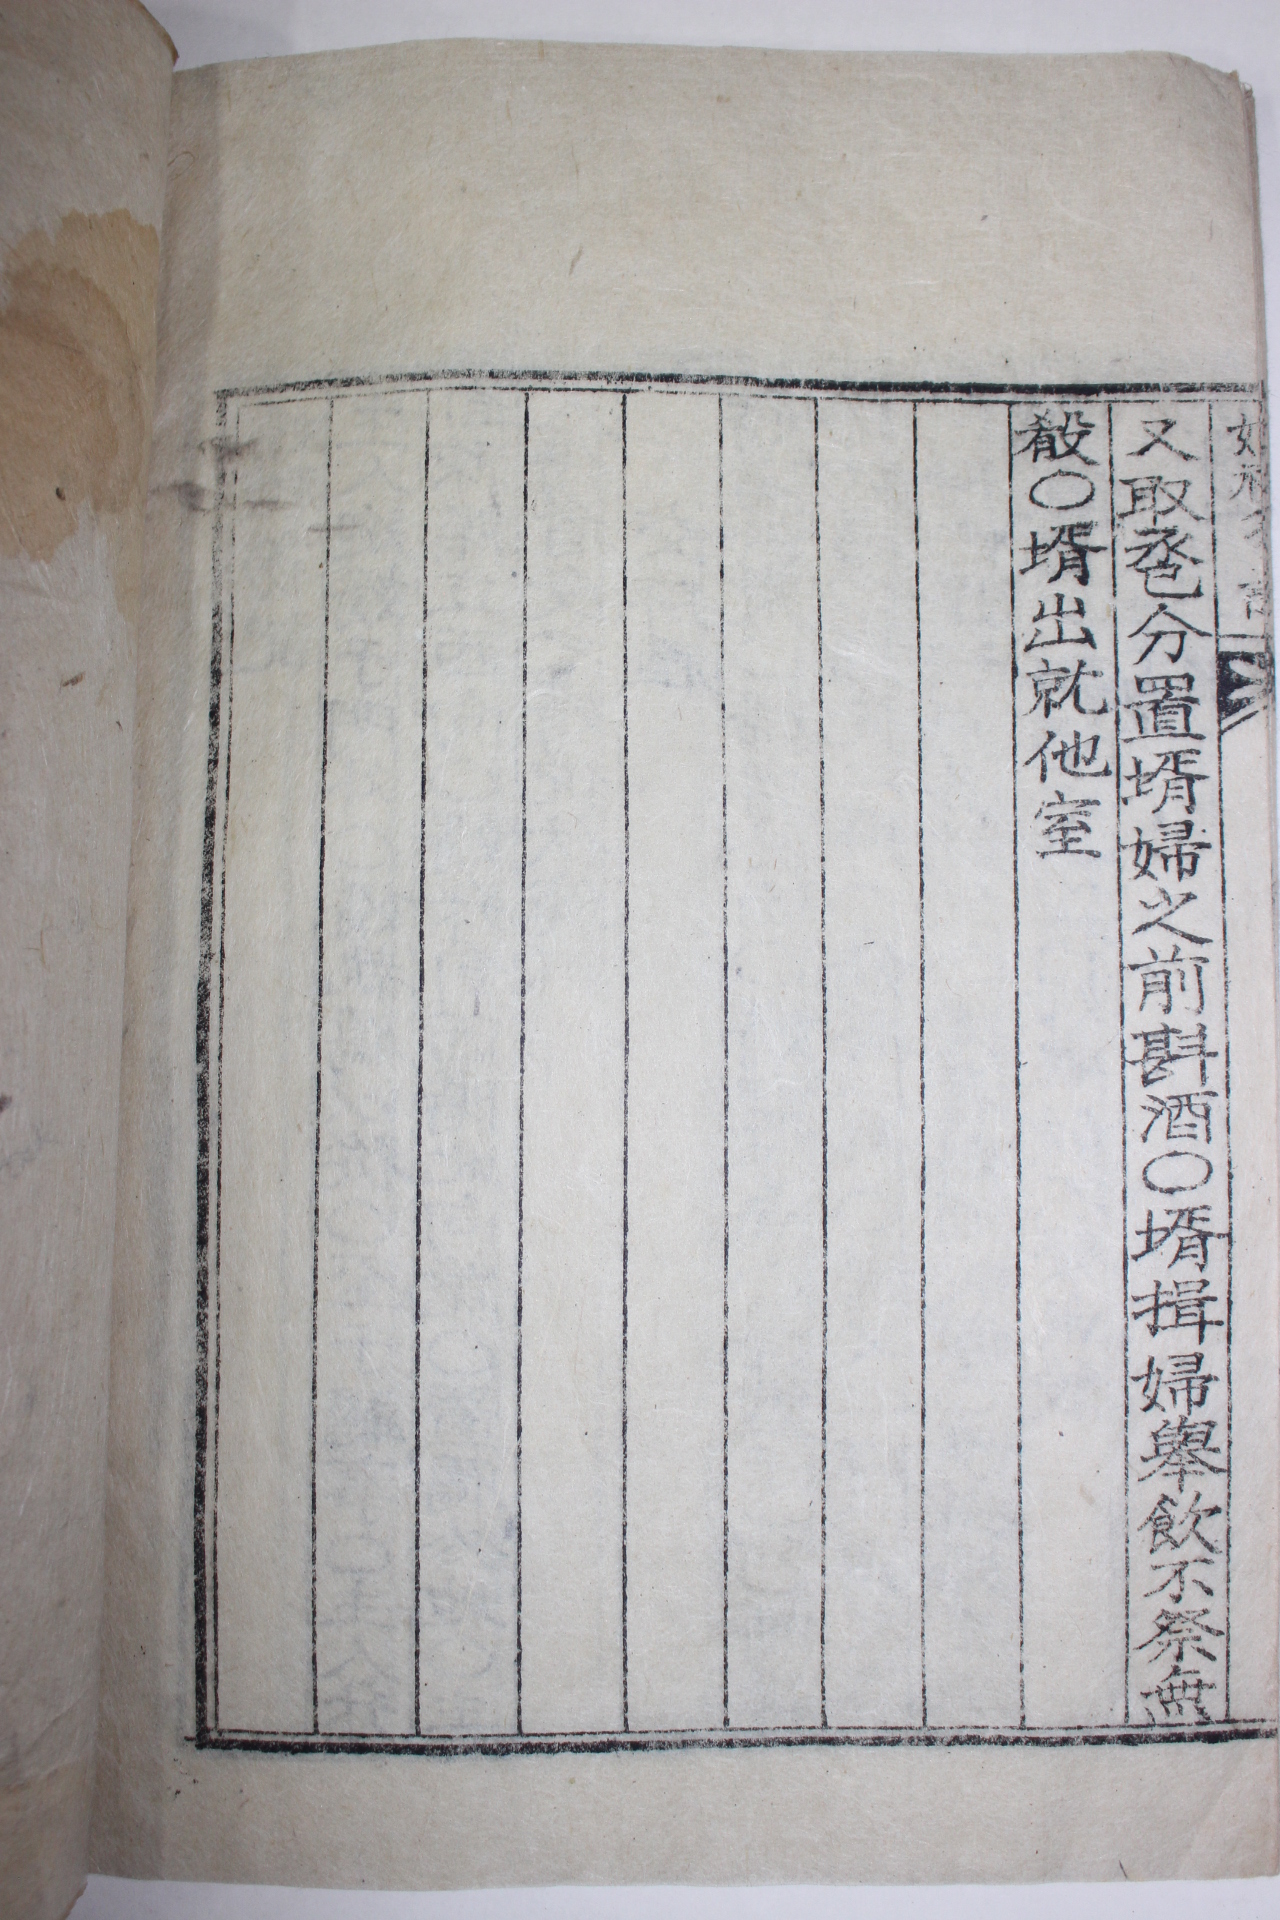 又取巹分置壻婦之前斟酒○壻揖婦舉飮不祭無
殽○壻出就他室